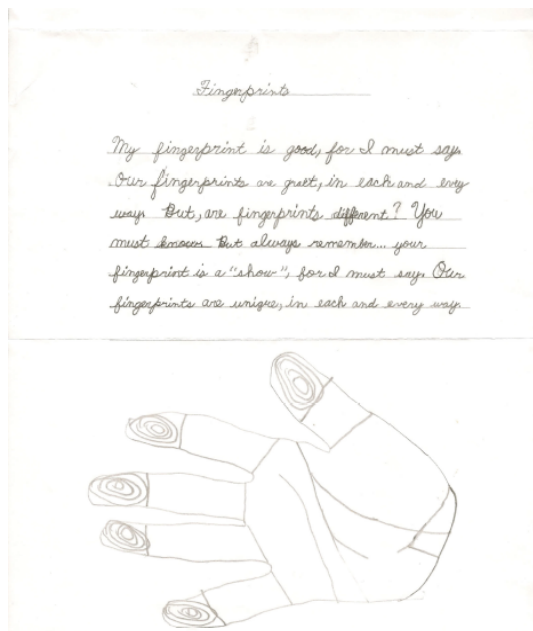 Fingerprints
My fingerprint is good, for I must say.
Our fingerprints are graet, in each and evry
way. But, are fingerprints different? You
must know. But always remember... your
fingerprint is a "show", for I must say. Our
fingerprints are uniqre, in each and every way.